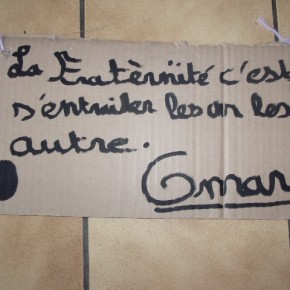 La Fraternité c'est
s'entraider les un les
autre.
Omar